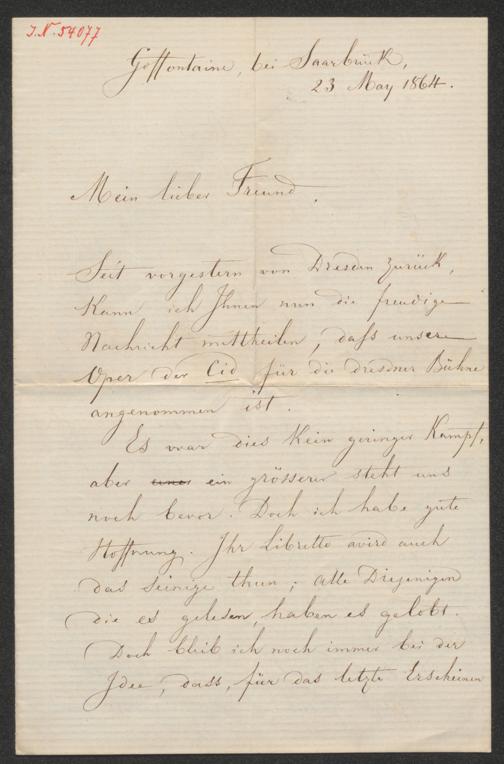 J.N. 54077
Goffontaine, bei Saarbrück,
23 May 1864.
Mein lieber Freund.
Seit vorgestern von Dresden zurück,
kann ich Ihnen nun die freudige
Nachricht mittheilen, daß unsere
Oper der Cid für die dresdner Bühne
angenommen ist.
Es war dies kein geringer Kampf,
aber ein grösserer steht uns
noch bevor. Doch ich habe gute
Hoffnung. Ihr Libretto wird auch
das seinige thun; alle Diejenigen
die es gelesen, haben es gelobt.
Doch bleib ich noch immer bei der
Idee, dass, für das letzte Erscheinen